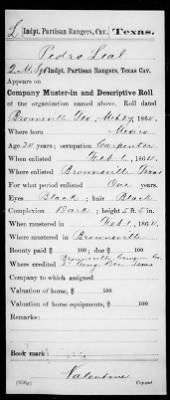 L | Indpt. Partisan Rangers, Cav. | Texas.
Pedro Leal
Indpt. Partisan Rangers, Texas Cav.
Appears on
Company Muster-in and Descriptive Roll
of the organization named above. Roll dated
Brownsville Tex, 1864.
Where born Mexico
Age 20 years; occupation Carpenter
When enlisted Feb 1, 1864.
Where enlisted Brownsville Texas
For what period enlisted One years.
Eyes Black; hair Black
Complexion Dark; height 5 ft. 5 in.
When mustered in Feb 1, 1864.
Where mustered in Brownsville
Bounty paid $ 100; due $ 100
Where credited
Company to which assigned
Valuation of horse, $ 100
Valuation of horse equipments, $ 100
Remarks:
Book mark:
Valentine
Copyist